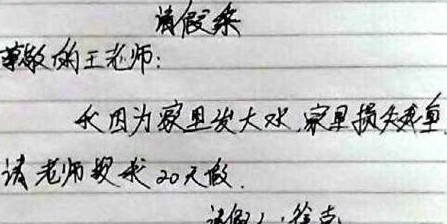 请假条
尊敬的王老师:
我因为家里发大水,家里损失惨重
请老师批我20天假.
请假人:徐吉